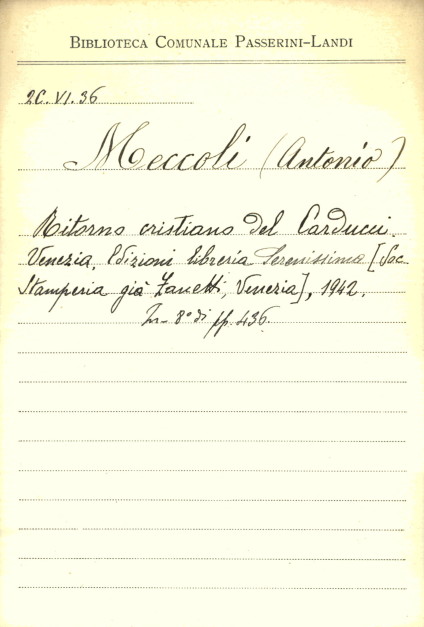 BIBLIOTECA COMUNALE PASSERINI-LANDI
2C. VI. 36
Meccoli (Antonio)
Ritorno cristiano del Carducci.
Venezia, Edizioni libreria Serenissima [Soc.
Stamperia già Zanetti, Venezia], 1942.
In-8° di pp. 436.